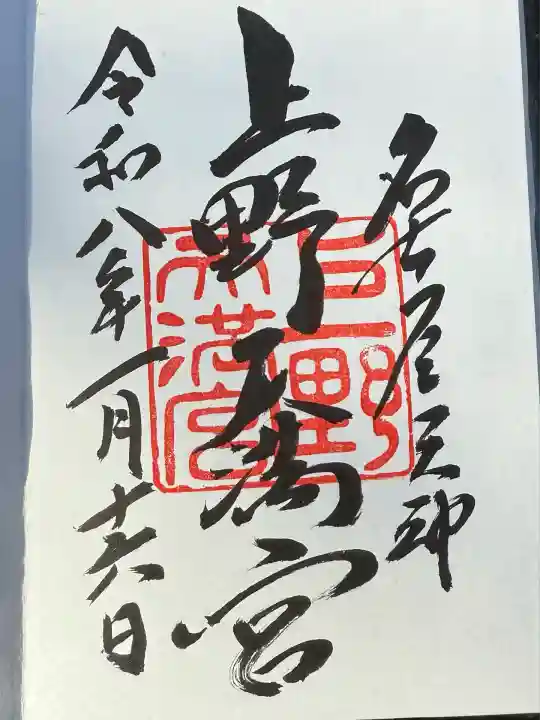 名古屋天神
上野天満宮
上野
天満宮
令和八年一月十六日